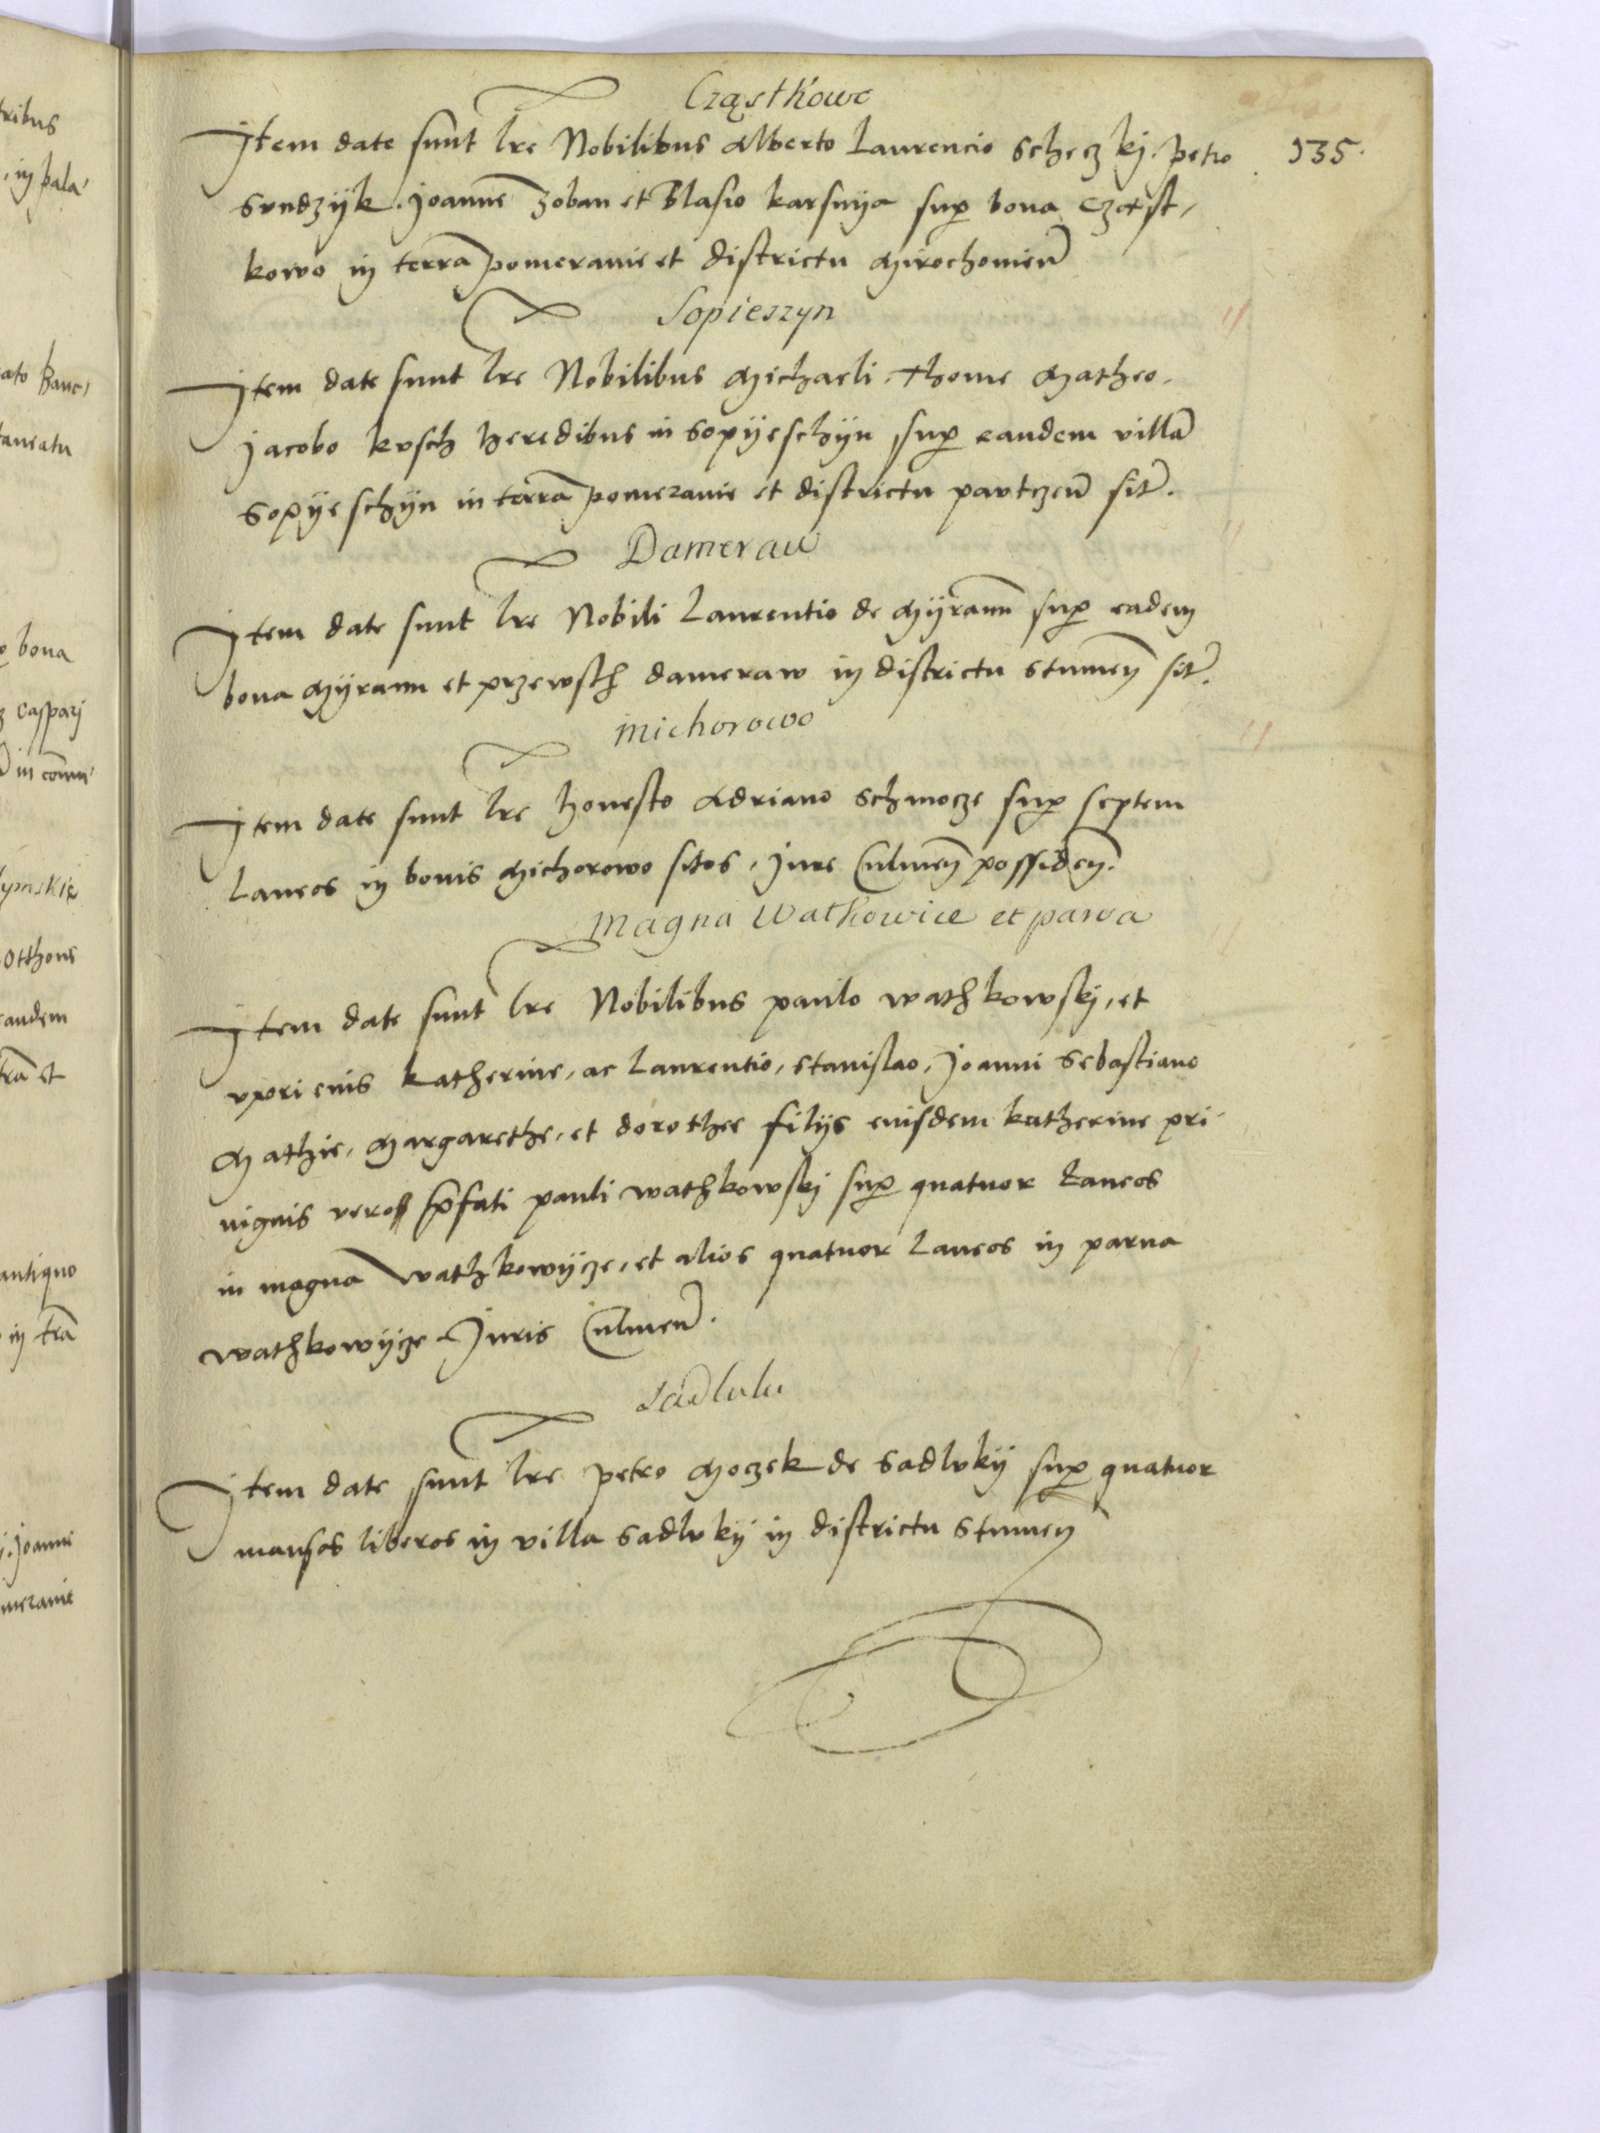 Cząstkowo
Item date sunt lre Nobilibus Alberto Laurencio Scheczkj. Petro 135.
Sundzÿk. Joanne Zoban et Blasio Karsnÿa sup bona Czast,
kowo in terra pomeranie et districtu Mirochonien
Sopieszyn
Item date sunt lre Nobilibus Michaeli. Thome Matheo.
Jacobo Kusch heredibus in Sopÿeschÿn sup eandem villa
Sopÿeschÿn in terra pomeranie et districtu pautczen sit.
Damerau
Item date sunt lre Nobili Laurentio de Mÿrann sup eadem
bona Mÿrann et przewsch Dameraw in districtu Stumen sit.
Michorowo
Item date sunt lre honesto Adriano Schmocze sup septem
Laneos in bonis Michorowo sitos. Jure Culmen possiden.
Magna Watkowice et parva
Item date sunt lre Nobilibus paulo wathkowskj, et
vxori eius Katherine, ac Laurentio, Stanislao, Joanni Sebastiano
Mathie, Margarethe, et Dorothee filÿs eiusdem Katherine pri
uignis vero pfati pauli wathkowskj sup quatuor Laneos
in magna Wathkowÿcze, et alios quatuor Laneos in parua
Wathkowÿcze Juris Culmen.
Sadluki
Item date sunt lre Petro Moczek de Sadlukÿ sup quatuor
mansos liberos in villa Sadlukÿ in districtu Stumen
tribus
in pala
taneatu
bona
Casparj
in comu
Otthone
eandem
tra et
antiquo
in tra
Joanni
meranie